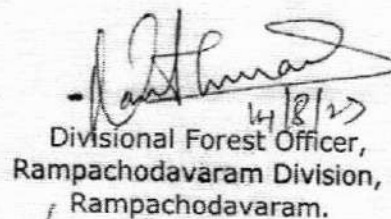 14/8/23
Divisional Forest Officer,
Rampachodavaram Division,
Rampachodavaram.